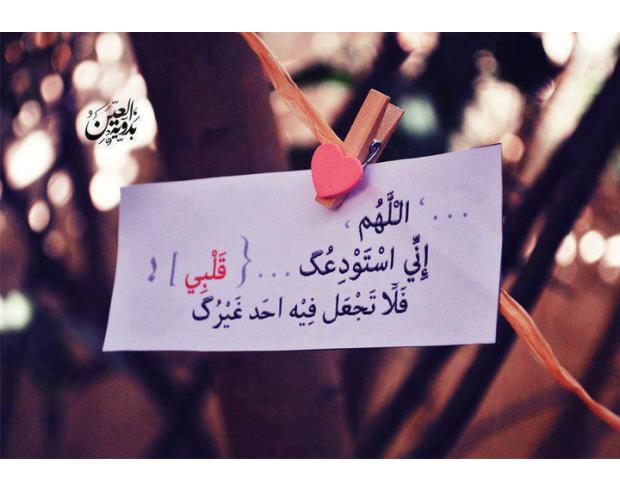 بدوية العين
... ‘ اللَّهُم ‘
إِنِّي اسْتَوْدِعُكَ ... { قَلْبِي ] !
فَلَا تَجْعَل فِيْه احَد غَيْرُكَ